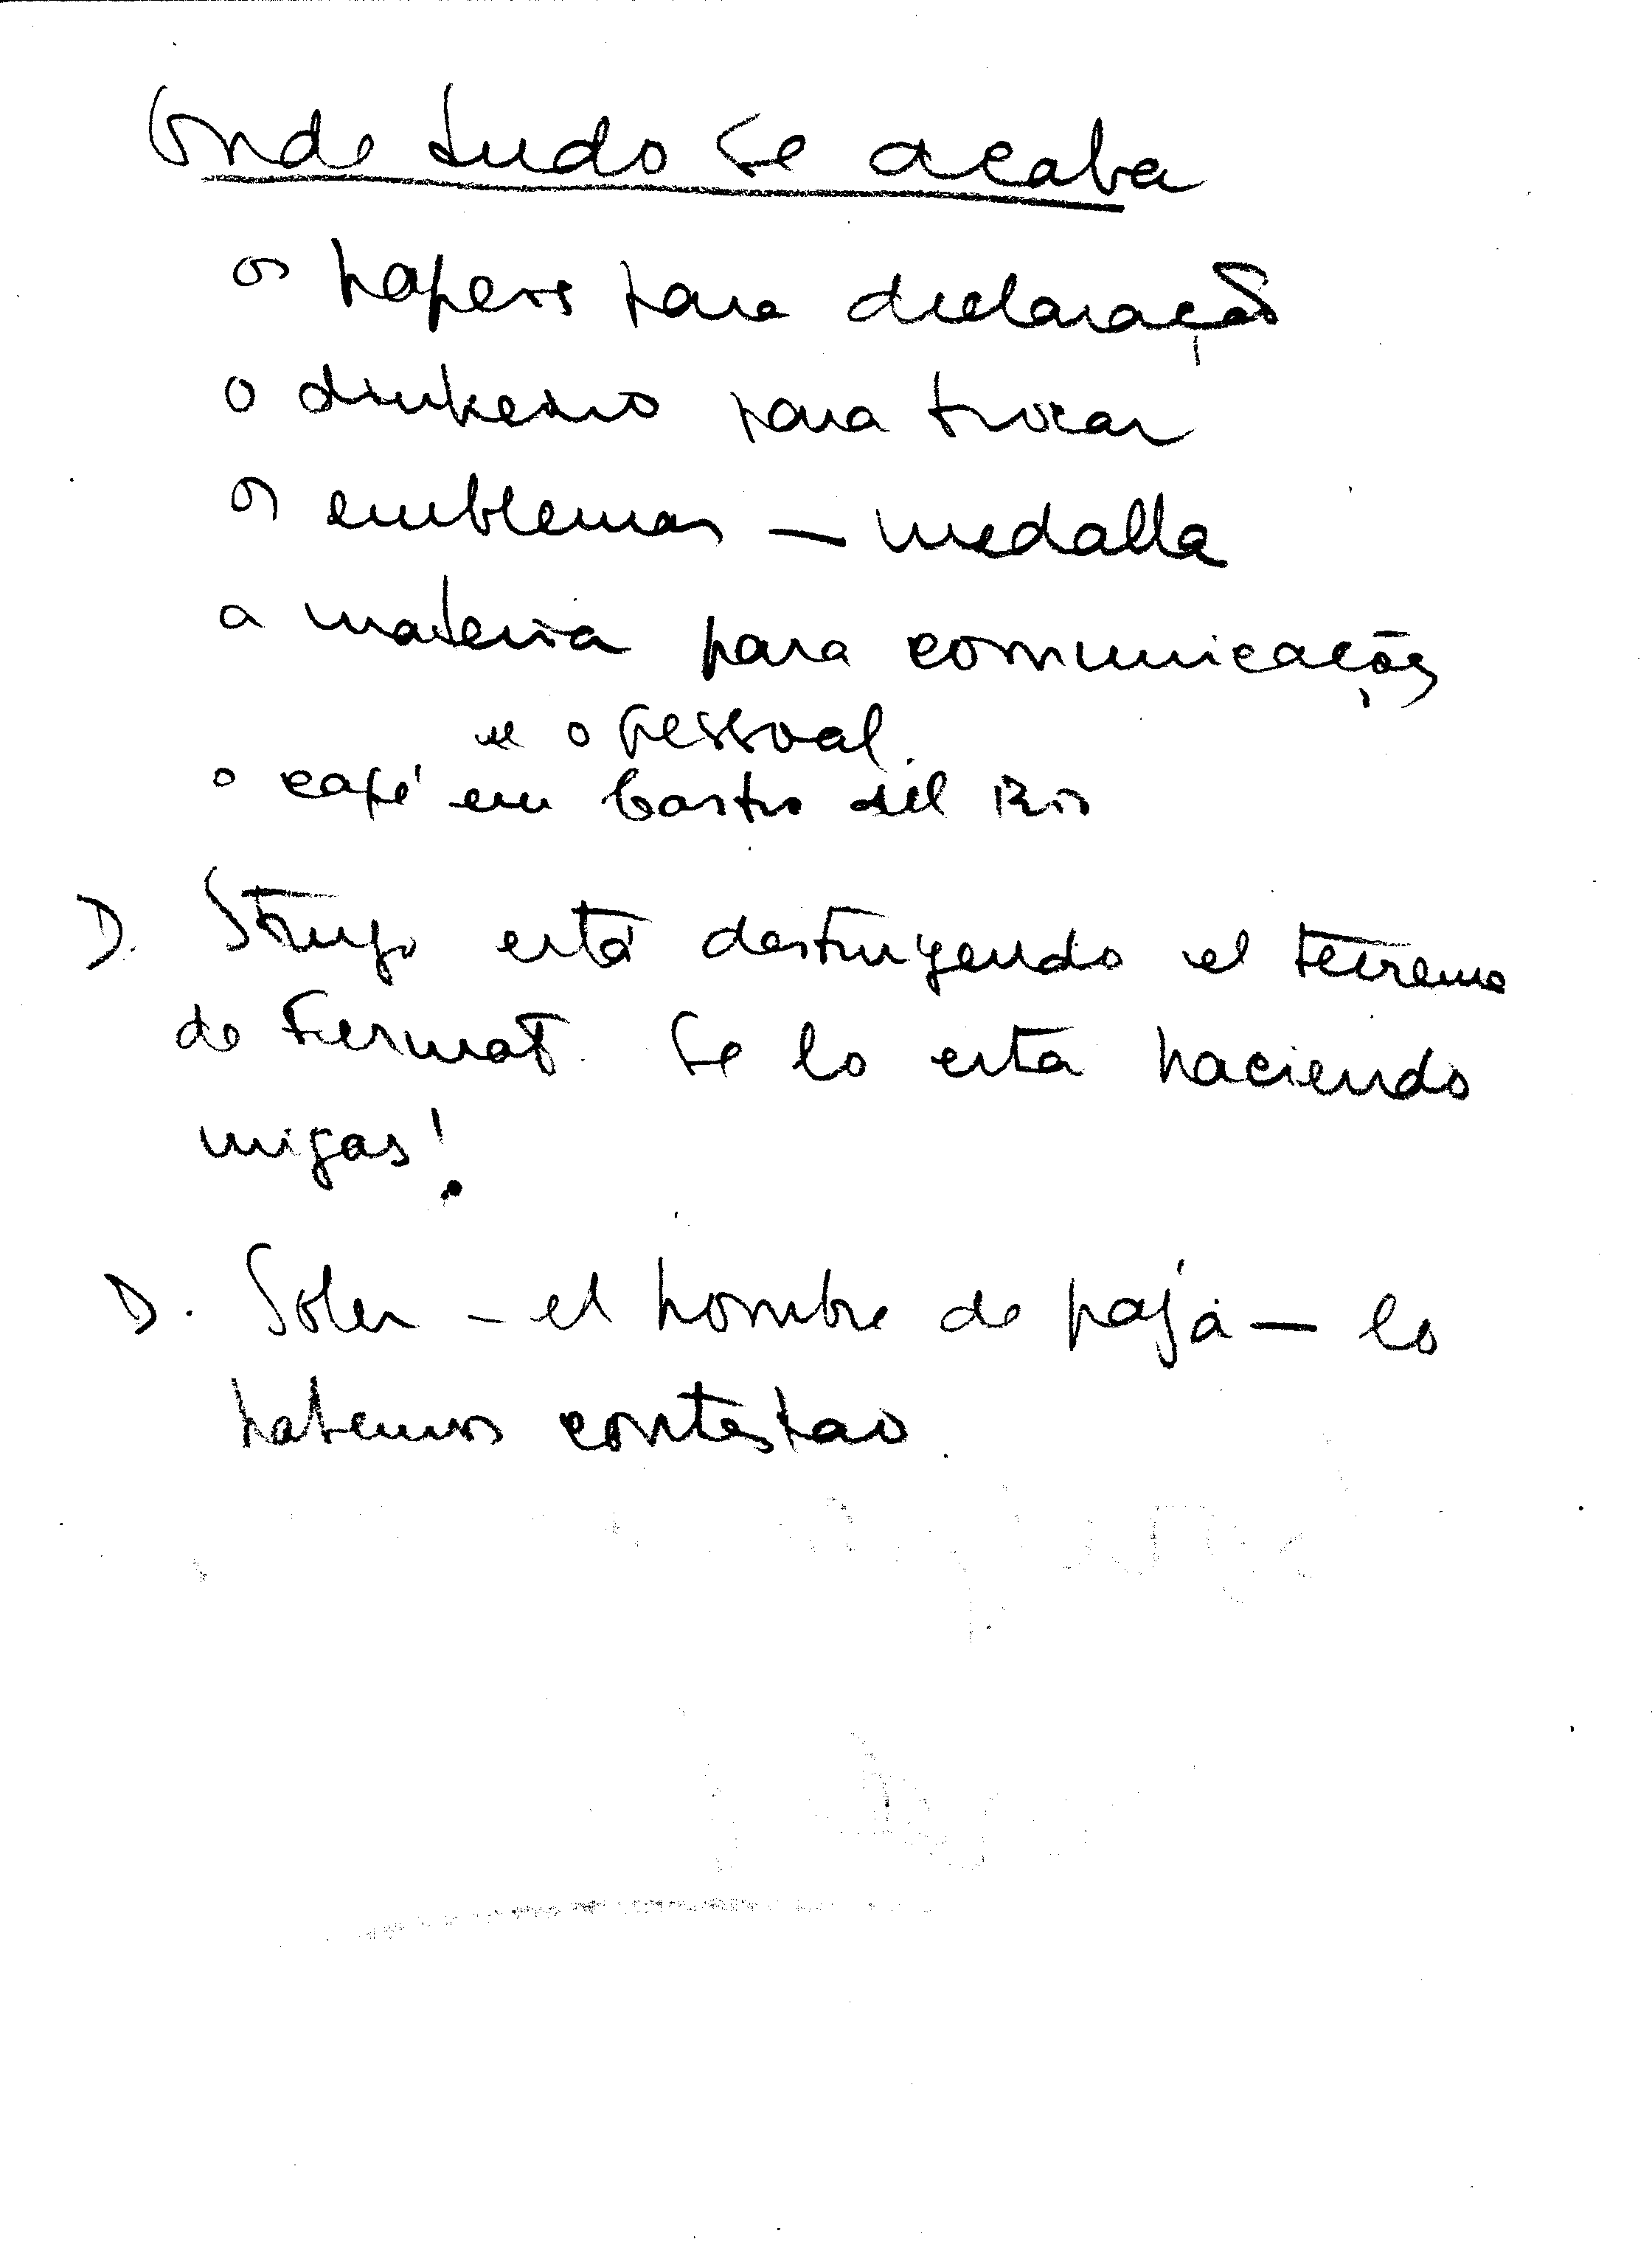 Onde tudo se acaba
os papeis para declaração
o dinheiro para trocar
os emblemas — medalla
a materia para comunicações
e o pessoal.
o café em Castro del Rio
D. está destruyendo el teorema
de Fermat. Se lo está haciendo
migas!
D. Soler - el hombre de paja — lo
habemos contestao.